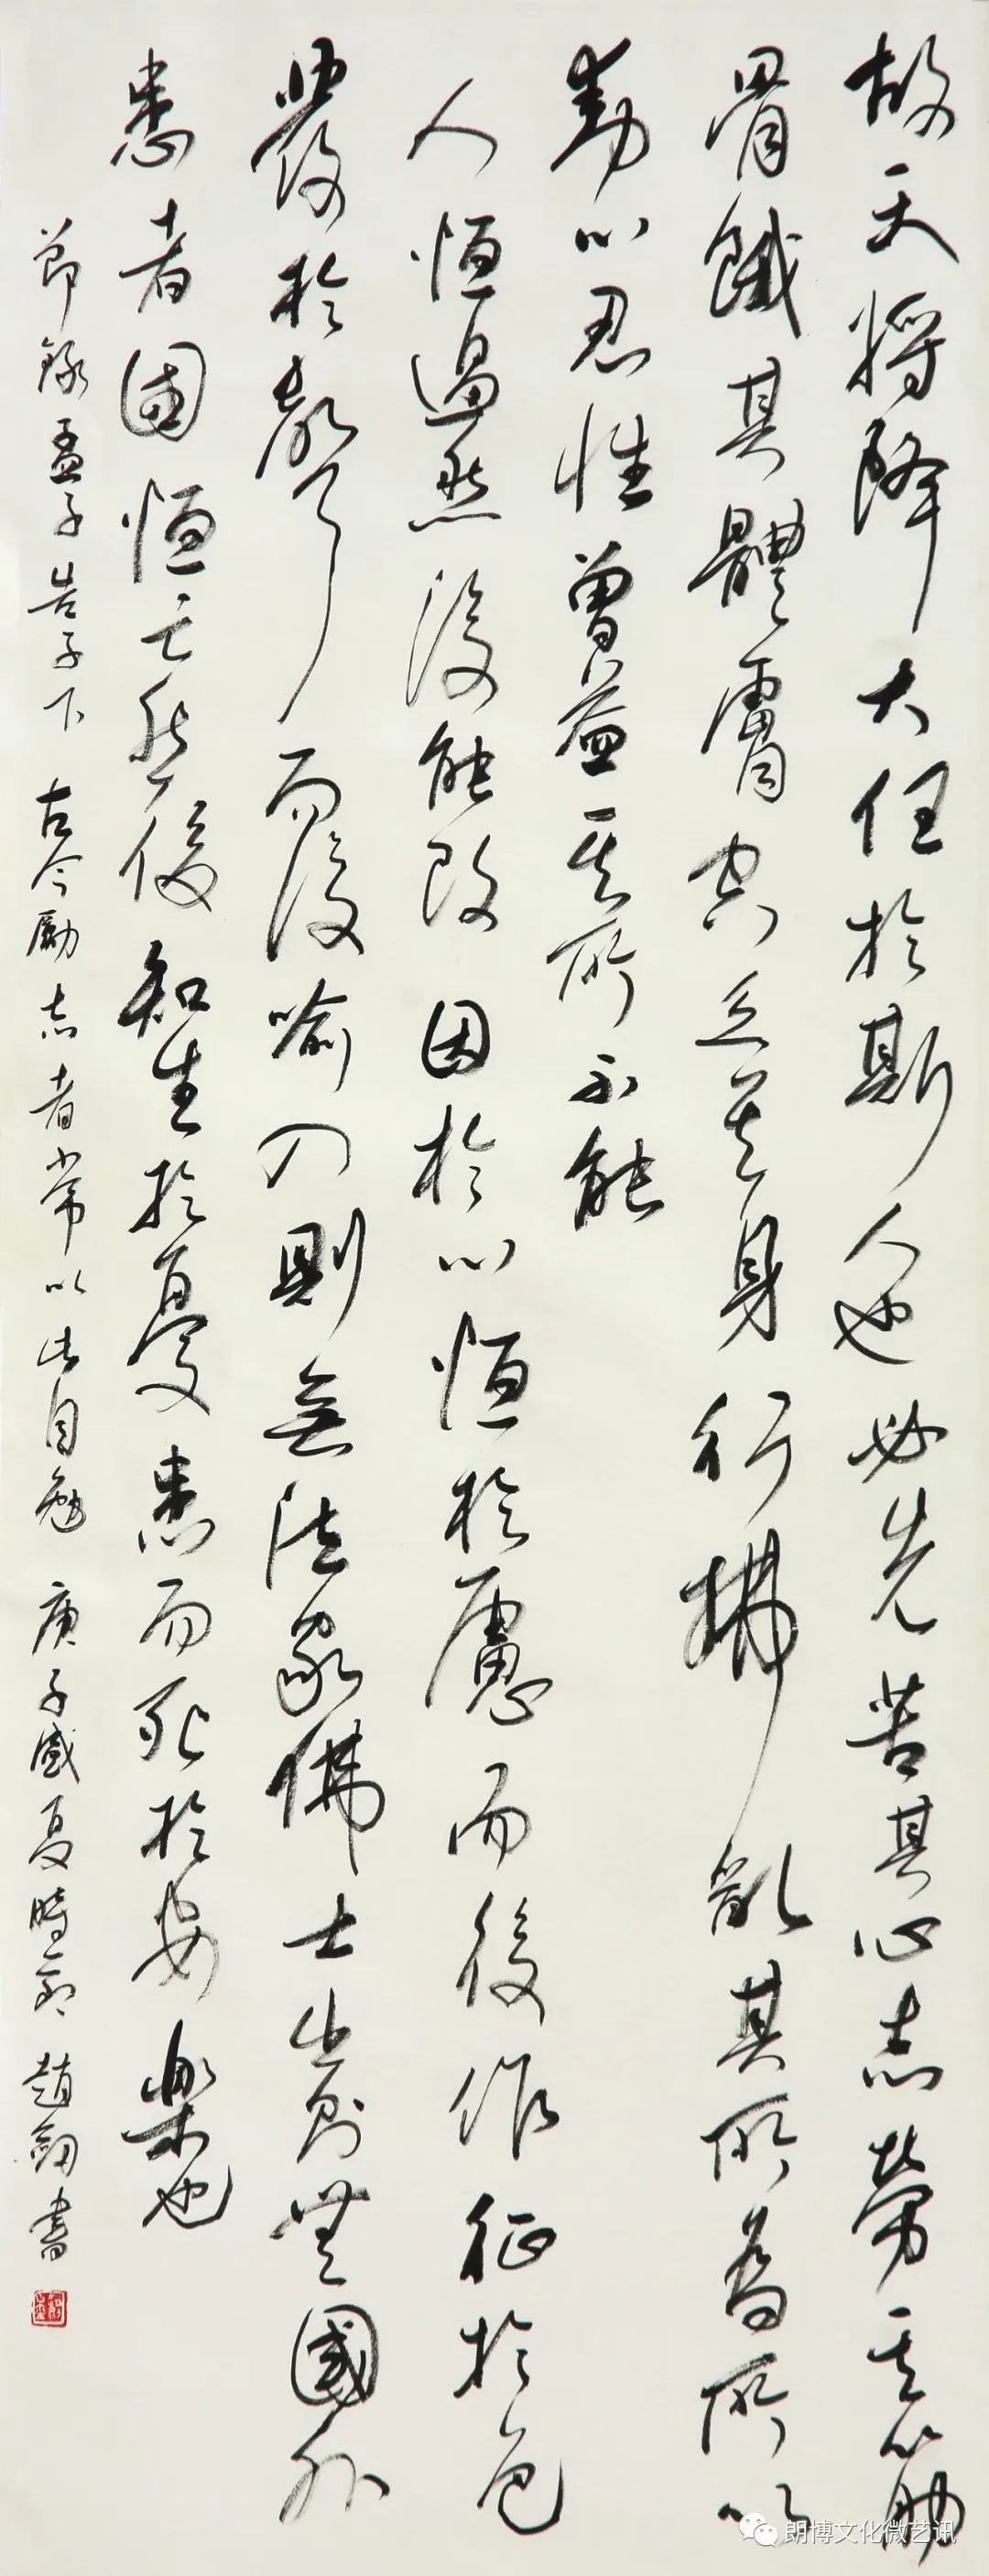 故天將降大任於斯人也必先苦其心志勞其筋
骨餓其體膚空乏其身行拂亂其所為所以
動心忍性曾益其所不能
人恒過然後能改困於心恒於慮而後作征於色
發於聲而後喻入則無法家佛士出則無國外
患者國恒亡然後知生於憂患而死於安樂也
節錄孟子告子下 古今勵志者常以此自勉 庚子盛夏時節 趙劍書
朗博文化微艺讯